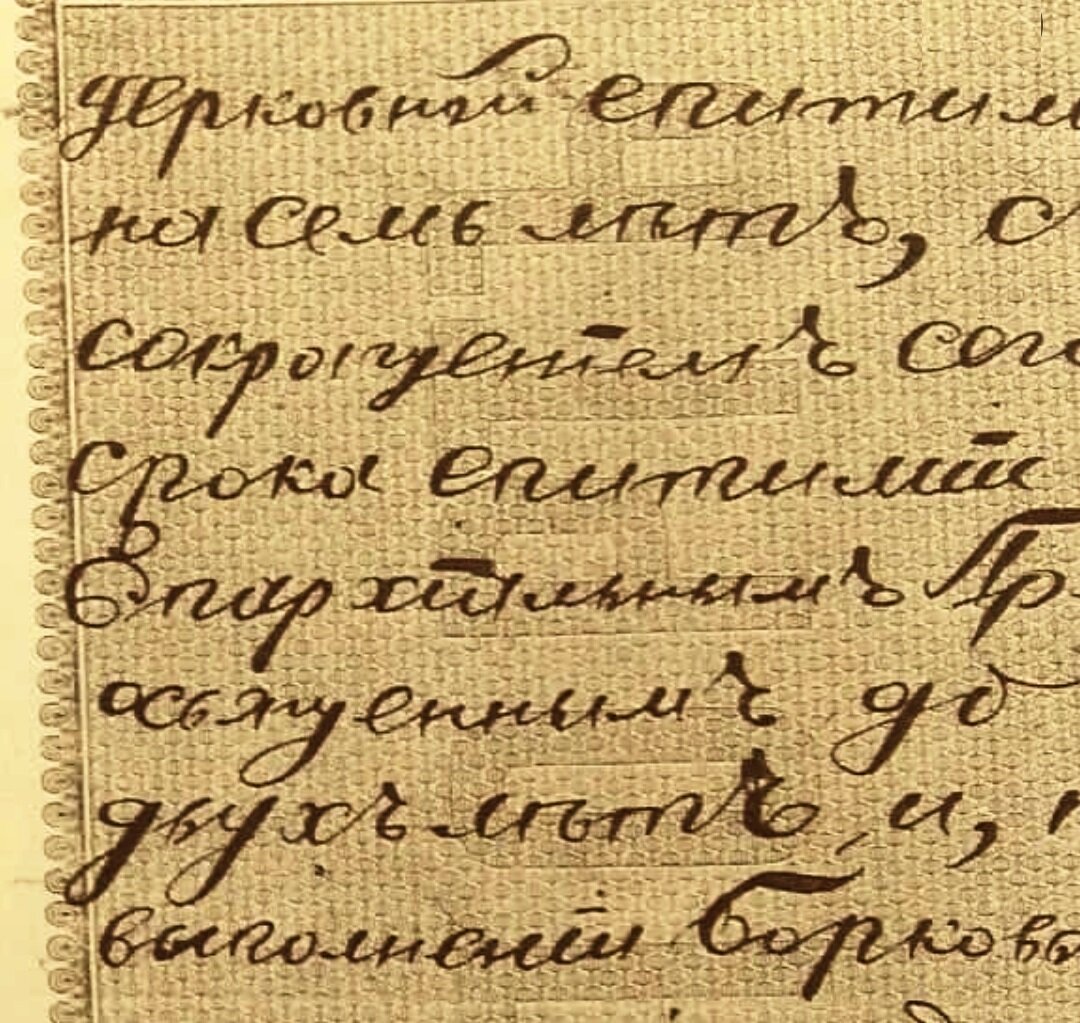 церковной епитим
на семь лѣтъ, с
сокращеніемъ сего
срока епитиміи
Епархіальнымъ Пр
освященнымъ до
двухъ лѣтъ, и,
выполненіи Борковы